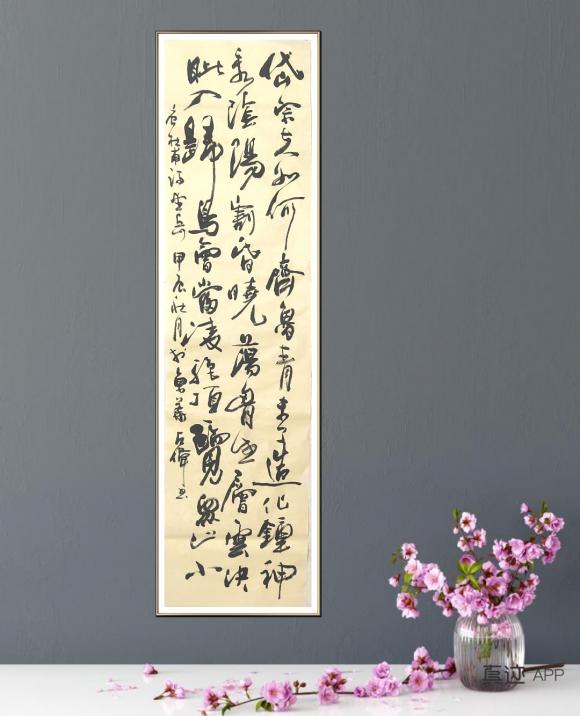 岱宗夫如何齊魯青未了造化鍾神
秀陰陽割昏曉蕩胷生層雲決
眦入歸鳥會當凌絕頂一覽眾山小
唐杜甫诗望岳 甲辰 月於魯
真迹 APP